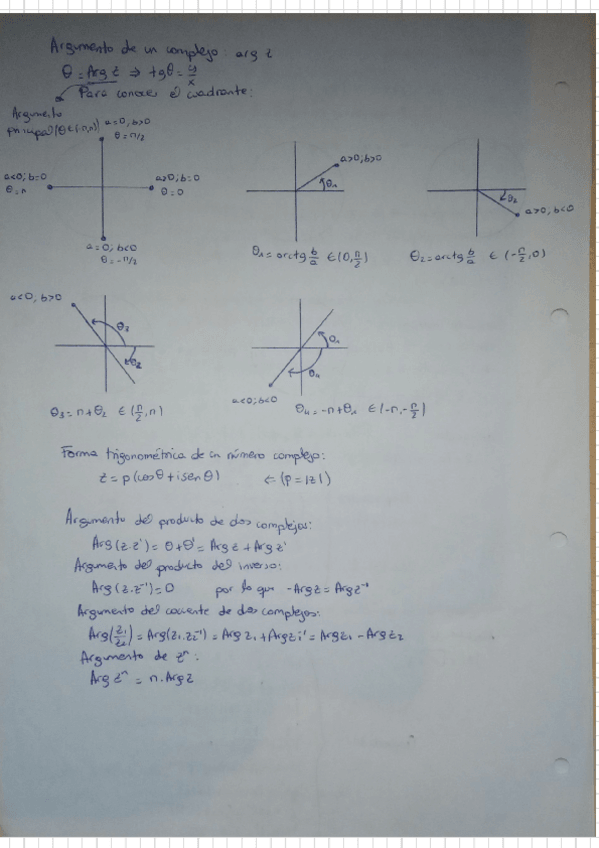 Argumento de un complejo: arg z
θ = Arg z ⇒ tgθ = y/x
Para conocer el cuadrante:
Argumento
principal (θ∈(-π,π))
a=0; b>0
θ=π/2
a<0; b=0
θ=π
a>0; b=0
θ=0
a=0; b<0
θ=-π/2
a>0; b>0
θ₁
θ₁ = arctg b/a ∈ (0, π/2)
θ₂
a>0; b<0
θ₂ = arctg b/a ∈ (-π/2, 0)
a<0; b>0
θ₃
θ₂
θ₃ = π+θ₂ ∈ (π/2, π)
θ₁
θ₄
a<0; b<0
θ₄ = -π+θ₁ ∈ (-π, -π/2)
Forma trigonométrica de un número complejo:
z = ρ(cosθ + i senθ) ← (ρ = |z|)
Argumento del producto de dos complejos:
Arg(z·z') = θ+θ' = Arg z + Arg z'
Argumento del producto del inverso:
Arg(z·z⁻¹) = 0 por lo que -Arg z = Arg z⁻¹
Argumento del cociente de dos complejos:
Arg(z₁/z₂) = Arg(z₁·z₂⁻¹) = Arg z₁ + Arg z₂⁻¹ = Arg z₁ - Arg z₂
Argumento de zⁿ:
Arg zⁿ = n·Arg z